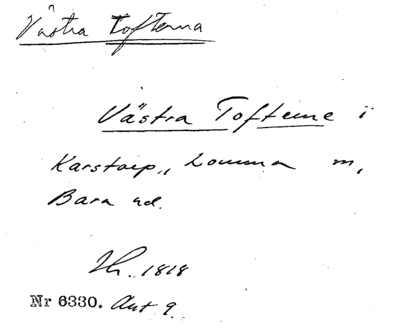 Västra Tofterna
Västra Tofterne i
Karstorp, Lomma m,
Bara hd.
Th. 1818
Nr 6330. Aut 9.